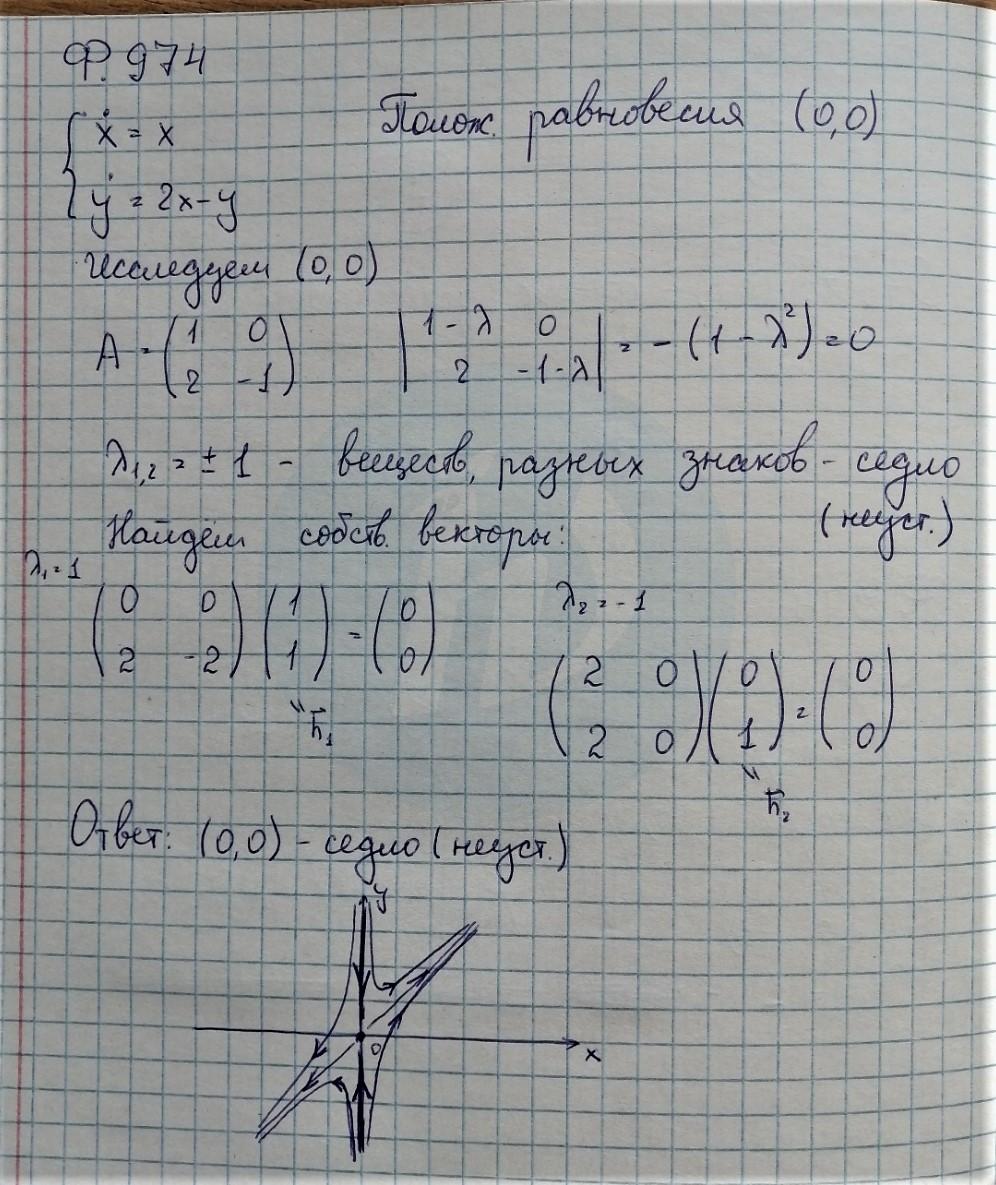 Ф. 974
{ ẋ = x
ẏ = 2x-y
Полож. равновесия (0,0)
Исследуем (0,0)
A = (1 0; 2 -1) |1-λ 0; 2 -1-λ| = -(1-λ²) = 0
λ₁,₂ = ±1 - веществ, разных знаков - седло
(неуст.)
Найдём собств. векторы:
λ₁ = 1
(0 0; 2 -2) (1; 1) = (0; 0)
h̄₁
λ₂ = -1
(2 0; 2 0) (0; 1) = (0; 0)
h̄₂
Ответ: (0,0) - седло (неуст.)
y
0
x